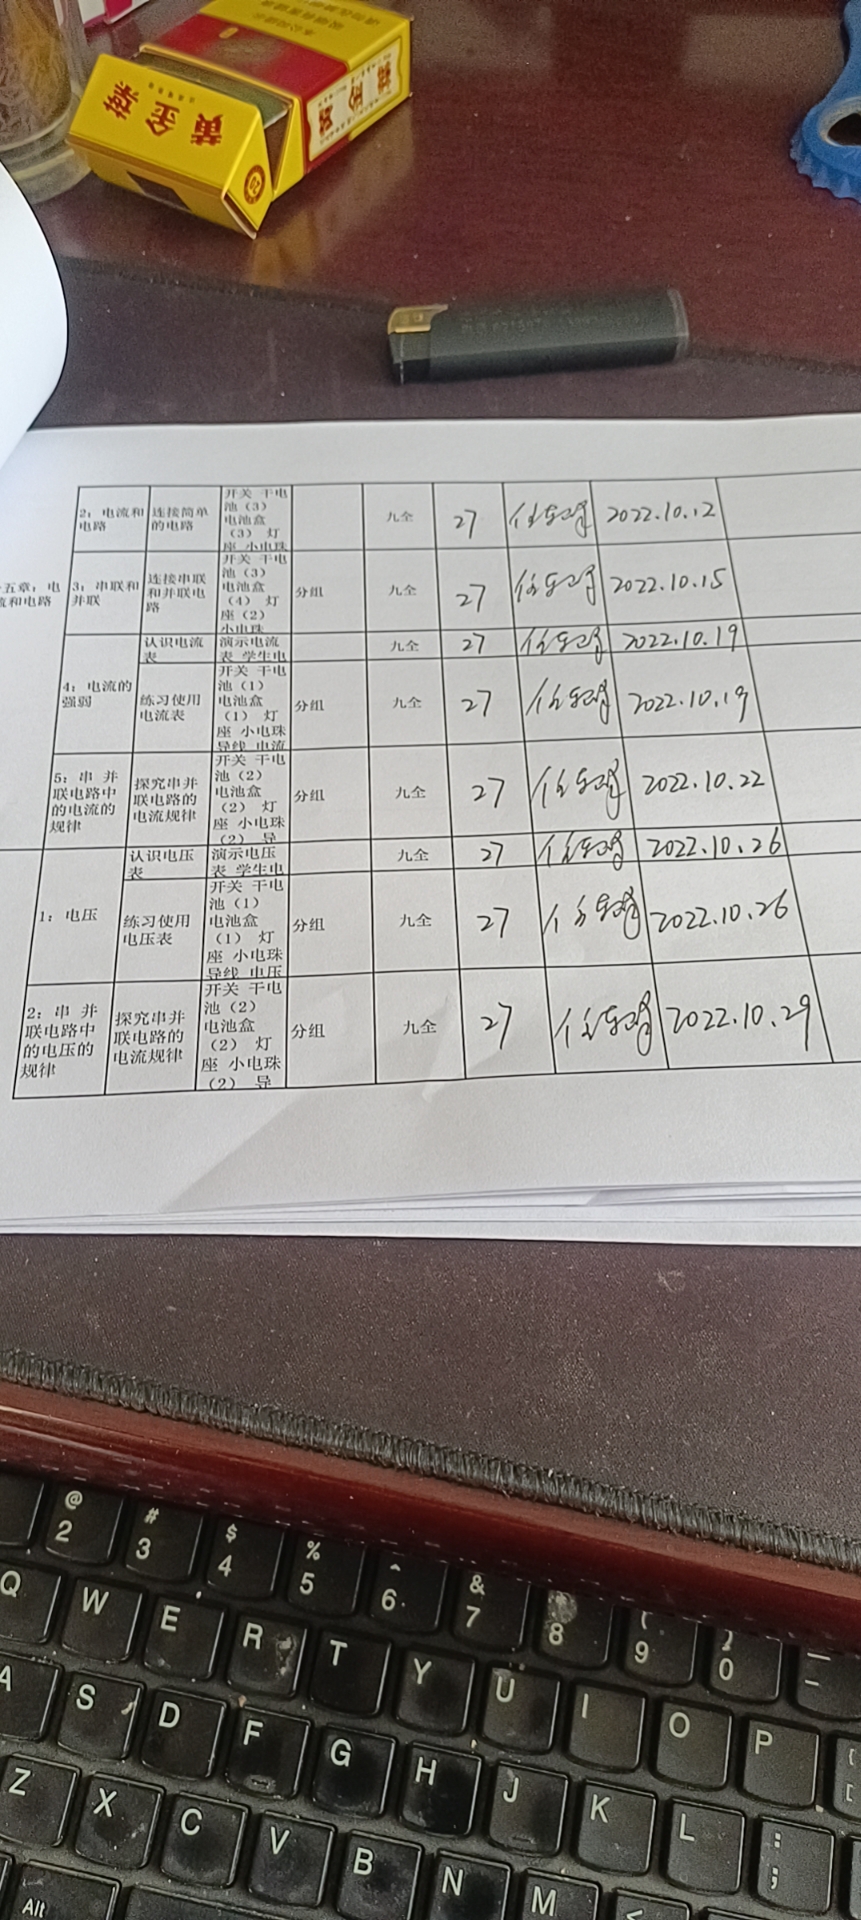 黄金叶
20
2：电流和电路 连接简单的电路 开关 干电池（3） 电池盒（3） 灯座 小电珠 九全 27 2022.10.12
五章：电流和电路 3：串联和并联 连接串联和并联电路 开关 干电池（3） 电池盒（4） 灯座（2） 小电珠 分组 九全 27 2022.10.15
认识电流表 演示电流表 学生电 九全 27 2022.10.19
4：电流的强弱 练习使用电流表 开关 干电池（1） 电池盒（1） 灯座 小电珠 导线 电流 分组 九全 27 2022.10.19
5：串 并联电路中的电流的规律 探究串并联电路的电流规律 开关 干电池（2） 电池盒（2） 灯座 小电珠（2） 导 分组 九全 27 2022.10.22
认识电压表 演示电压表 学生电 九全 27 2022.10.26
1：电压 练习使用电压表 开关 干电池（1） 电池盒（1） 灯座 小电珠 导线 电压 分组 九全 27 2022.10.26
2：串 并联电路中的电压的规律 探究串并联电路的电流规律 开关 干电池（2） 电池盒（2） 灯座 小电珠（2） 导 分组 九全 27 2022.10.29
@ # $ % ^ & ( )
2 3 4 5 6 7 8 9 0
Q W E R T Y U I O P
A S D F G H J K L : ;
Z X C V B N M <
Alt